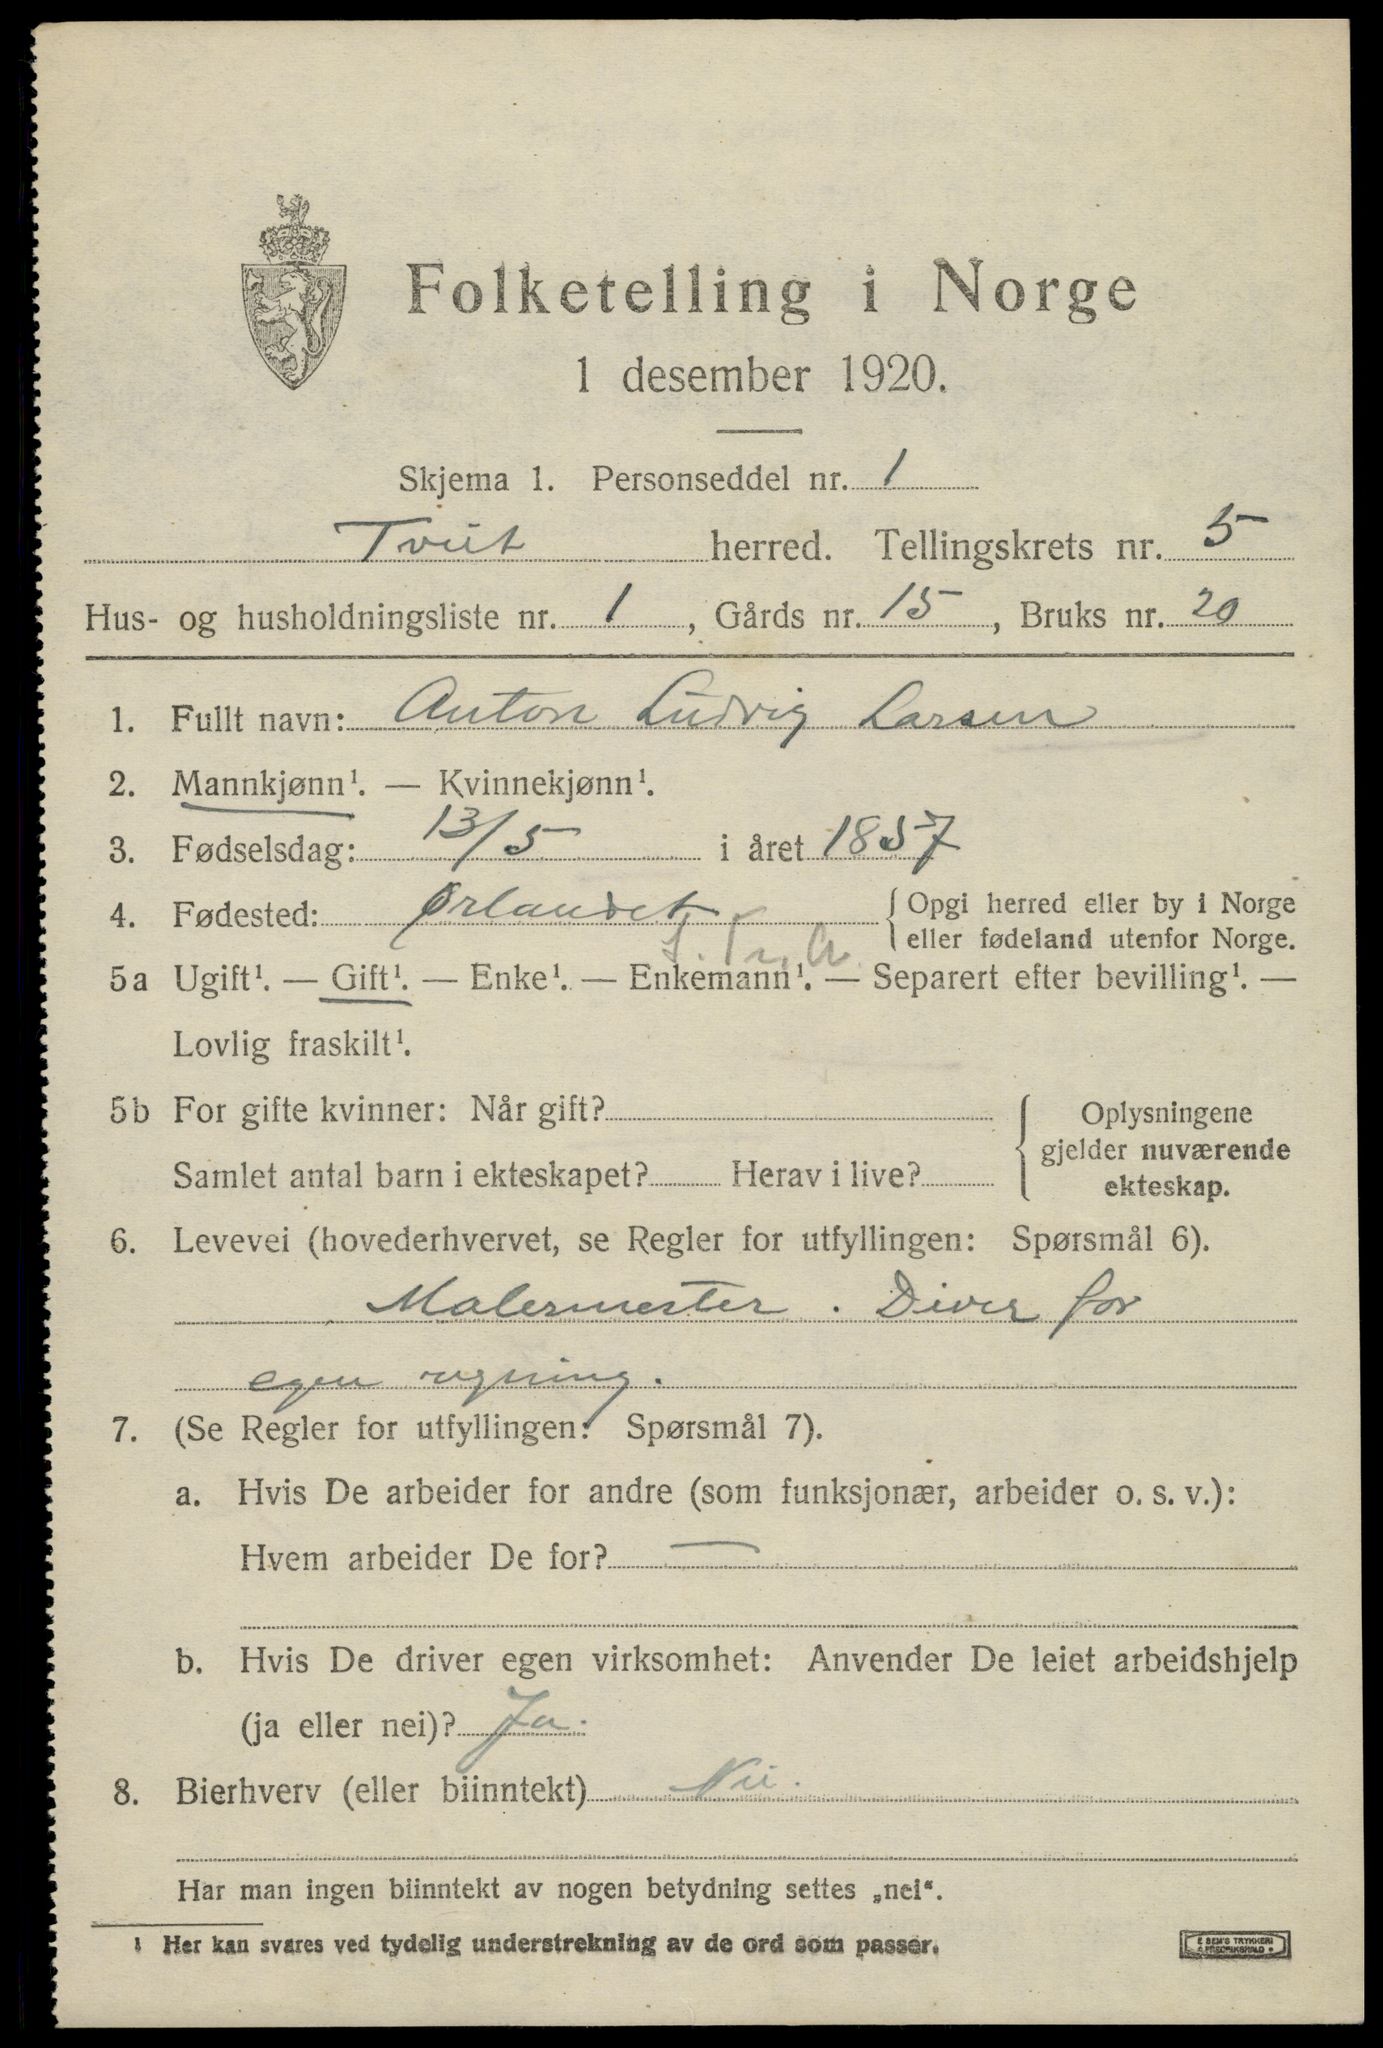 Folketelling i Norge
1 desember 1920.
Skjema 1. Personseddel nr. 1
Tveit herred. Tellingskrets nr. 5
Hus- og husholdningsliste nr. 1, Gårds nr. 15, Bruks nr. 20
1. Fullt navn: Anton Ludvig Larsen
2. Mannkjønn¹. — Kvinnekjønn¹.
3. Fødselsdag: 13/5 i året 1857
4. Fødested: Ørlandet { Opgi herred eller by i Norge
eller fødeland utenfor Norge.
5a Ugift¹. — Gift¹. — Enke¹. — Enkemann¹. — Separert efter bevilling¹. —
Lovlig fraskilt¹.
5b For gifte kvinner: Når gift?
Samlet antal barn i ekteskapet? Herav i live?
{ Oplysningene
gjelder nuværende
ekteskap.
6. Levevei (hovederhvervet, se Regler for utfyllingen: Spørsmål 6).
Malermester. Driver for
egen regning.
7. (Se Regler for utfyllingen: Spørsmål 7).
a. Hvis De arbeider for andre (som funksjonær, arbeider o. s. v.):
Hvem arbeider De for? —
b. Hvis De driver egen virksomhet: Anvender De leiet arbeidshjelp
(ja eller nei)? Ja.
8. Bierhverv (eller biinntekt) Nei.
Har man ingen biinntekt av nogen betydning settes „nei“.
¹ Her kan svares ved tydelig understrekning av de ord som passer.
E SEM'S TRYKKERI
FREDRIKSHALD